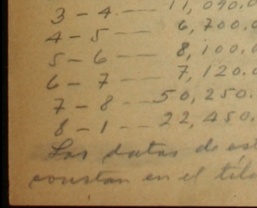 3 - 4 --- 11,090.0
4 - 5 --- 6,700.0
5 - 6 --- 8,100.0
6 - 7 --- 7,120.0
7 - 8 --- 50,250.
8 - 1 --- 22,450.
Los datos de est
constan en el títu